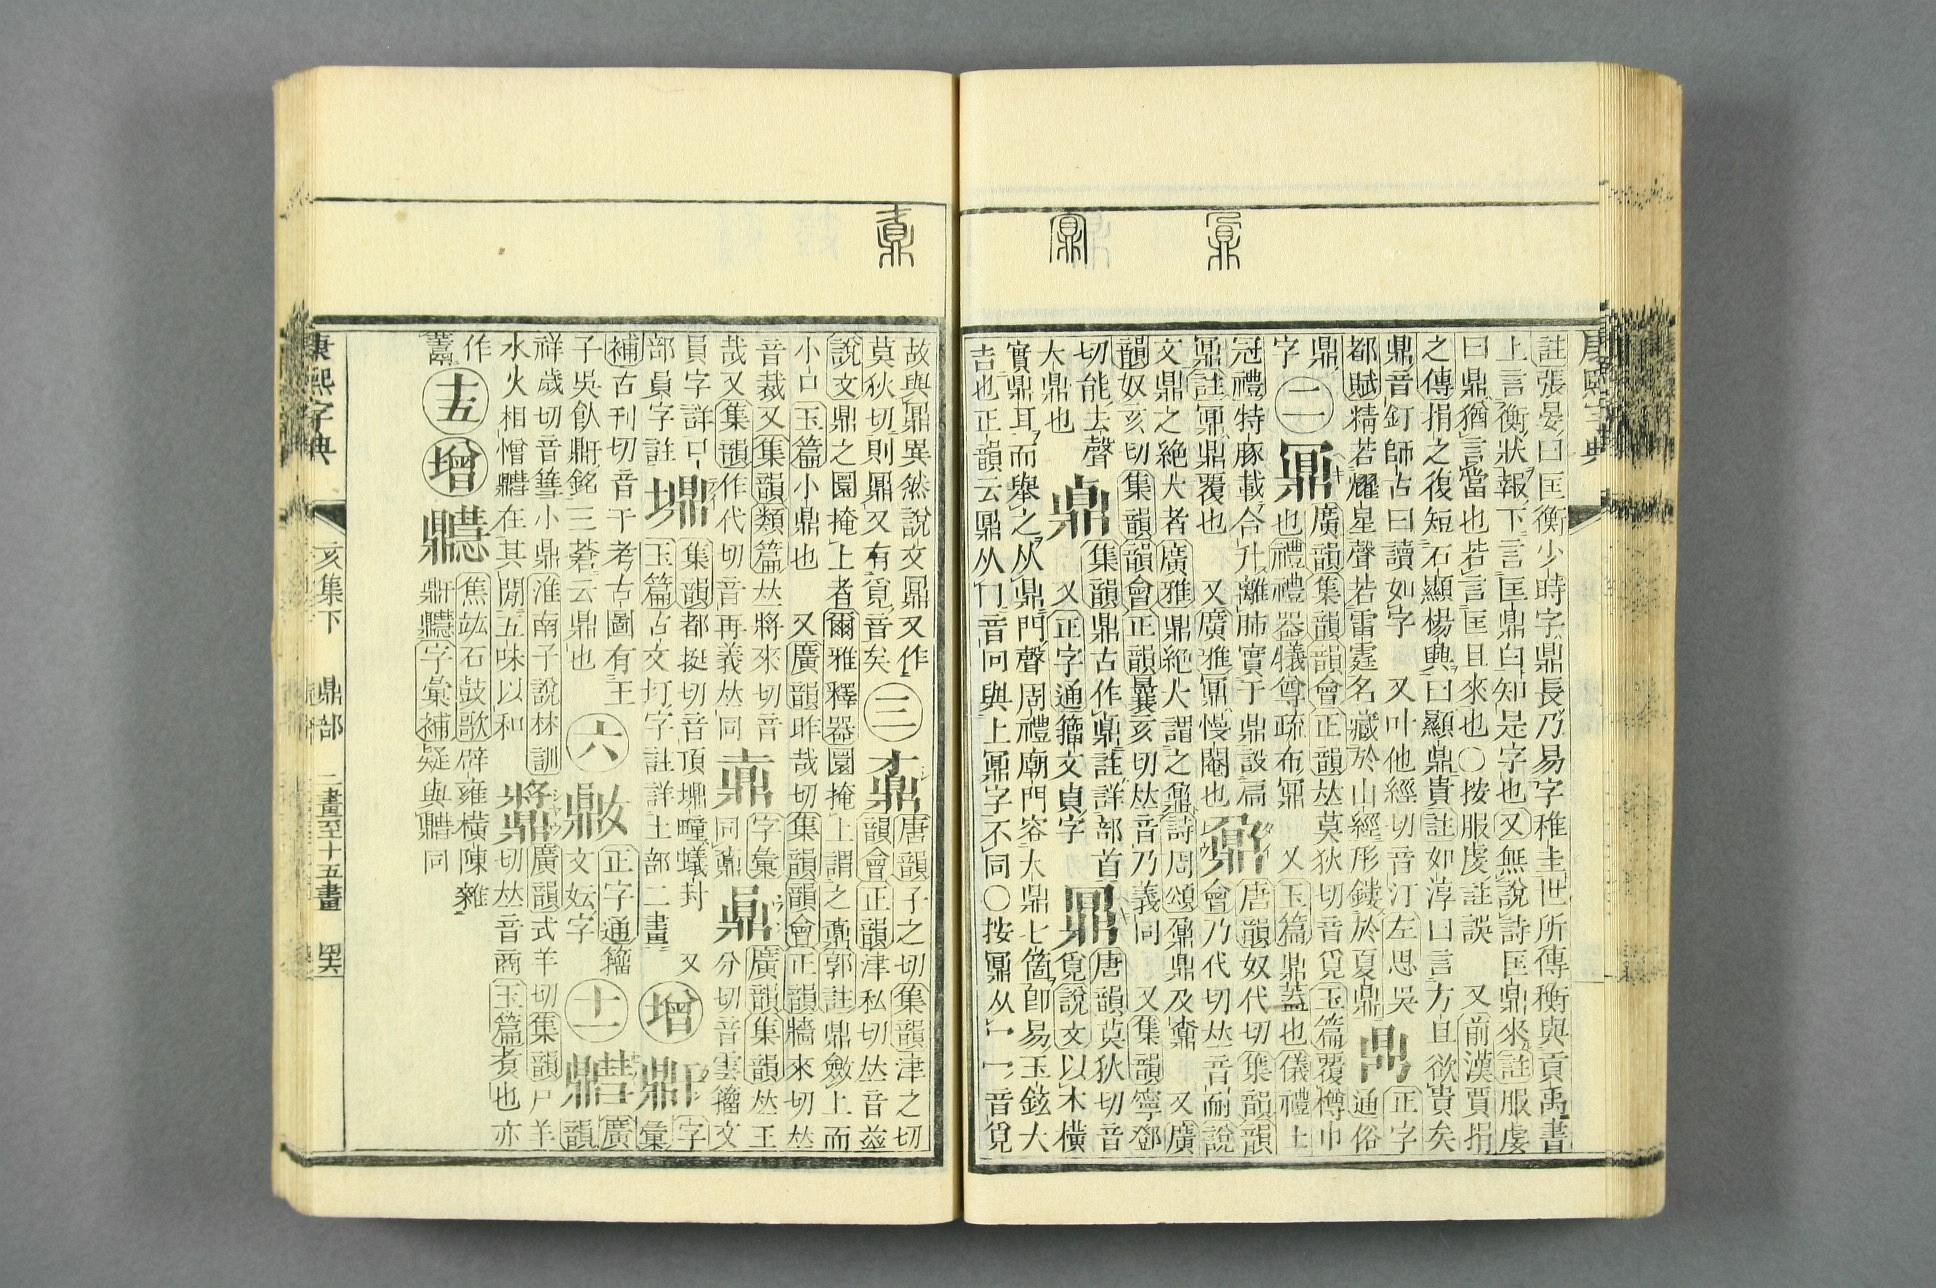 鼏
鼏
鼒
康熙字典
註張晏曰匡衡少時字鼎長乃易字稚圭世所傳衡與貢禹書
上言衡狀報下言匡鼎白知是字也又無說詩匡鼎來註服虔
曰鼎猶言當也若言匡且來也〇按服虔註誤 又前漢賈捐
之傳捐之復短石顯楊興曰顯鼎貴註如淳曰言方且欲貴矣
鼎音釘師古曰讀如字 又叶他經切音汀左思吳
都賦精若耀星聲若雷霆名藏於山經形鏤於夏鼎
正字
通俗
鼎
字
二
鼏
廣韻集韻韻會正韻𠀤莫狄切音覓玉篇覆樽巾
也禮禮器犧尊疏布鼏 又玉篇鼎蓋也儀禮士
冠禮特豚載合升離肺實于鼎設扃
鼏註鼏鼎覆也 又廣雅鼏幔闇也
鼐
唐韻奴代切集韻韻
會乃代切𠀤音耐說
文鼎之絕大者廣雅鼎絕大謂之鼐詩周頌鼐鼎及鼒 又廣
韻奴亥切集韻韻會正韻曩亥切𠀤音乃義同 又集韻寧鄧
切能去聲
大鼎也
鼑
集韻鼎古作鼑註詳部首
又正字通籀文貞字
鼏
唐韻莫狄切音
覓說文以木橫
實鼎耳而舉之从鼎冂聲周禮廟門容大鼎七箇卽易玉鉉大
吉也正韻云鼏从冂音冋與上鼏字不同〇按鼏从冖一音覓
故與鼏異然說文鼏又作
莫狄切則鼏又有覓音矣
三
鼒
唐韻子之切集韻津之切
韻會正韻津私切𠀤音兹
說文鼎之圜掩上者爾雅釋器圜掩上謂之鼒郭註鼎斂上而
小口玉篇小鼎也 又廣韻昨哉切集韻韻會正韻牆來切𠀤
音裁又集韻類篇𠀤將來切音
哉又集韻作代切音再義𠀤同
字彙
同鼒
廣韻集韻𠀤王
分切音雲籀文
員字詳口
部員字註
集韻都挺切音頂畽蟻封 又
玉篇古文圢字註詳土部二畫
增
字
彙
補古刊切音干考古圖有王
子吳飤鼾銘三云鼎也
六
正字通籀
文妘字
十一
廣
韻
祥歲切音篲小鼎淮南子說林訓
水火相憎在其閒五味以和
廣韻式羊切集韻尸羊
切𠀤音商玉篇煑也亦
作
十五
增
焦竑石鼓歌辟雍橫陳雜
字彙補疑與同
康熙字典 亥集下 鼎部 二畫至十五畫